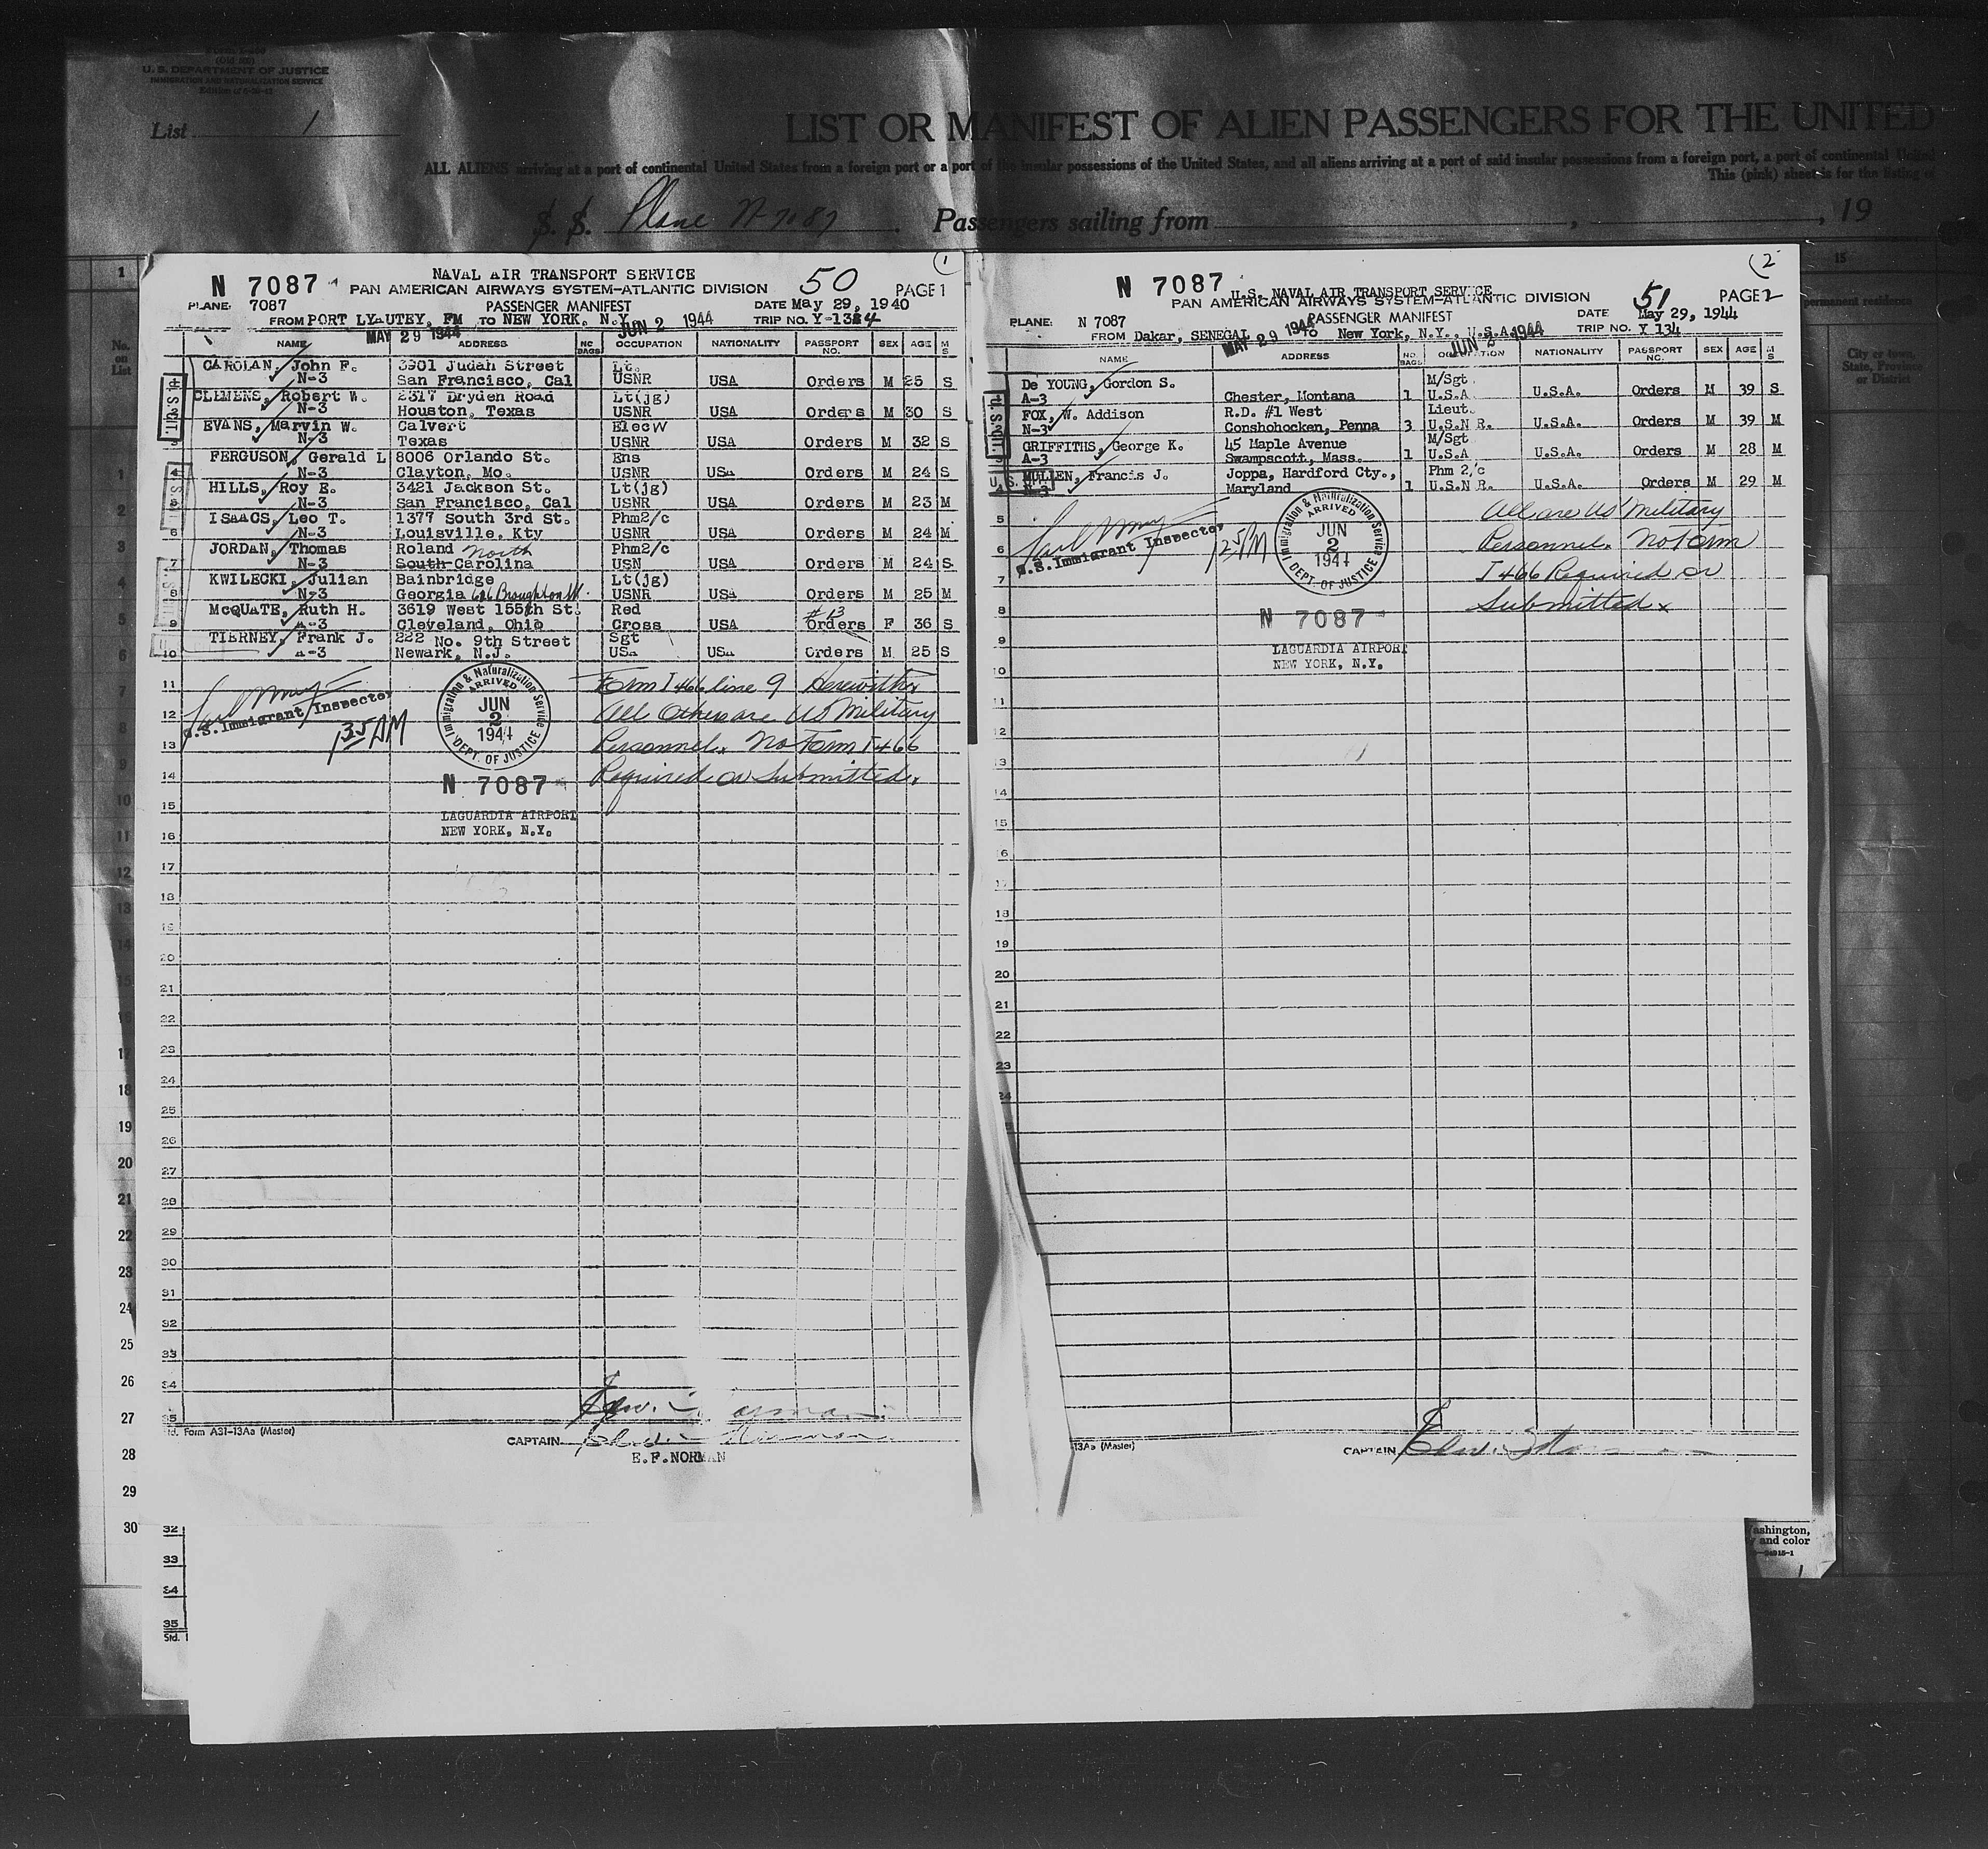 (Old 500)
U. S. DEPARTMENT OF JUSTICE
IMMIGRATION AND NATURALIZATION SERVICE
List 1
LIST OR MANIFEST OF ALIEN PASSENGERS FOR THE UNITED
ALL ALIENS arriving at a port of continental United States from a foreign port or a port of the insular possessions of the United States, and all aliens arriving at a port of said insular possessions from a foreign port, a port of continental United
This (pink) sheet is for the listing of
S. S. Plane N-7087 Passengers sailing from , , 19
N 7087
NAVAL AIR TRANSPORT SERVICE
50
1
PAN AMERICAN AIRWAYS SYSTEM-ATLANTIC DIVISION PAGE 1
PLANE: 7087 PASSENGER MANIFEST DATE May 29, 1940
FROM PORT LYAUTEY, FM TO NEW YORK, N.Y. TRIP NO. Y-134
MAY 29 1944 JUN 2 1944
NAME ADDRESS NO BAGS OCCUPATION NATIONALITY PASSPORT NO. SEX AGE M S
CAROLAN, John F. 3901 Judah Street Lt.
N-3 San Francisco, Cal USNR USA Orders M 25 S
CLEMENS, Robert W. 2317 Dryden Road Lt(jg)
N-3 Houston, Texas USNR USA Orders M 30 S
EVANS, Marvin W. Calvert ElecW
N-3 Texas USNR USA Orders M 32 S
FERGUSON, Gerald L 8006 Orlando St. Ens
N-3 Clayton, Mo. USNR USA Orders M 24 S
HILLS, Roy E. 3421 Jackson St. Lt(jg)
N-3 San Francisco, Cal USNR USA Orders M 23 M
ISAACS, Leo T. 1377 South 3rd St. Phm2/c
6 N-3 Louisville, Kty USNR USA Orders M 24 M
JORDAN, Thomas Roland North Phm2/c
7 N-3 South Carolina USN USA Orders M 24 S
KWILECKI, Julian Bainbridge Lt(jg)
8 N-3 Georgia 626 Broughton St. USNR USA Orders M 25 M
McQUATE, Ruth H. 3619 West 155th St. Red #13
9 A-3 Cleveland, Ohio Cross USA Orders F 36 S
TIERNEY, Frank J. 222 No. 9th Street Sgt
10 A-3 Newark, N.J. USA USA Orders M 25 S
Form I 466 line 9 Herewith
All Others are US Military
Personnel. No Form I 466
Required or Submitted.
U.S. Immigrant Inspector
1 35 AM
Immigration & Naturalization Service
ARRIVED
JUN
2
1944
DEPT. OF JUSTICE
N 7087
LAGUARDIA AIRPORT
NEW YORK, N.Y.
11
12
13
14
15
16
17
18
19
20
21
22
23
24
25
26
27
28
29
30
31
32
33
34
35
Std. Form A31-13Aa (Master)
CAPTAIN
E.F.NORMAN
N 7087
2
U.S. NAVAL AIR TRANSPORT SERVICE
51
PAN AMERICAN AIRWAYS SYSTEM-ATLANTIC DIVISION PAGE 2
PLANE: N 7087 PASSENGER MANIFEST DATE May 29, 1944
FROM Dakar, SENEGAL TO New York, N.Y., U.S.A. TRIP NO. Y 134
MAY 29 1944 JUN 2 1944
NAME ADDRESS NO BAGS OCCUPATION NATIONALITY PASSPORT NO. SEX AGE M S
De YOUNG, Gordon S. M/Sgt
A-3 Chester, Montana 1 U.S.A. U.S.A. Orders M 39 S
FOX, W. Addison R.D. #1 West Lieut.
N-3 Conshohocken, Penna 3 U.S.N R. U.S.A. Orders M 39 M
GRIFFITHS, George K. 45 Maple Avenue M/Sgt
A-3 Swampscott, Mass. 1 U.S.A U.S.A. Orders M 28 M
MULLEN, Francis J. Joppa, Hardford Cty., Phm 2/c
N-3 Maryland 1 U.S.N R. U.S.A. Orders M 29 M
All are US Military
Personnel. No Form
I 466 Required or
Submitted
U.S. Immigrant Inspector
1 25 AM
Immigration & Naturalization Service
ARRIVED
JUN
2
1944
DEPT. OF JUSTICE
N 7087
LAGUARDIA AIRPORT
NEW YORK, N.Y.
5
6
7
8
9
10
11
12
13
14
15
16
17
18
19
20
21
22
23
24
13Aa (Master)
CAPTAIN
15
permanent residence
City or town,
State, Province
or District
No.
on
List
32
33
34
35
Std.
Washington,
and color